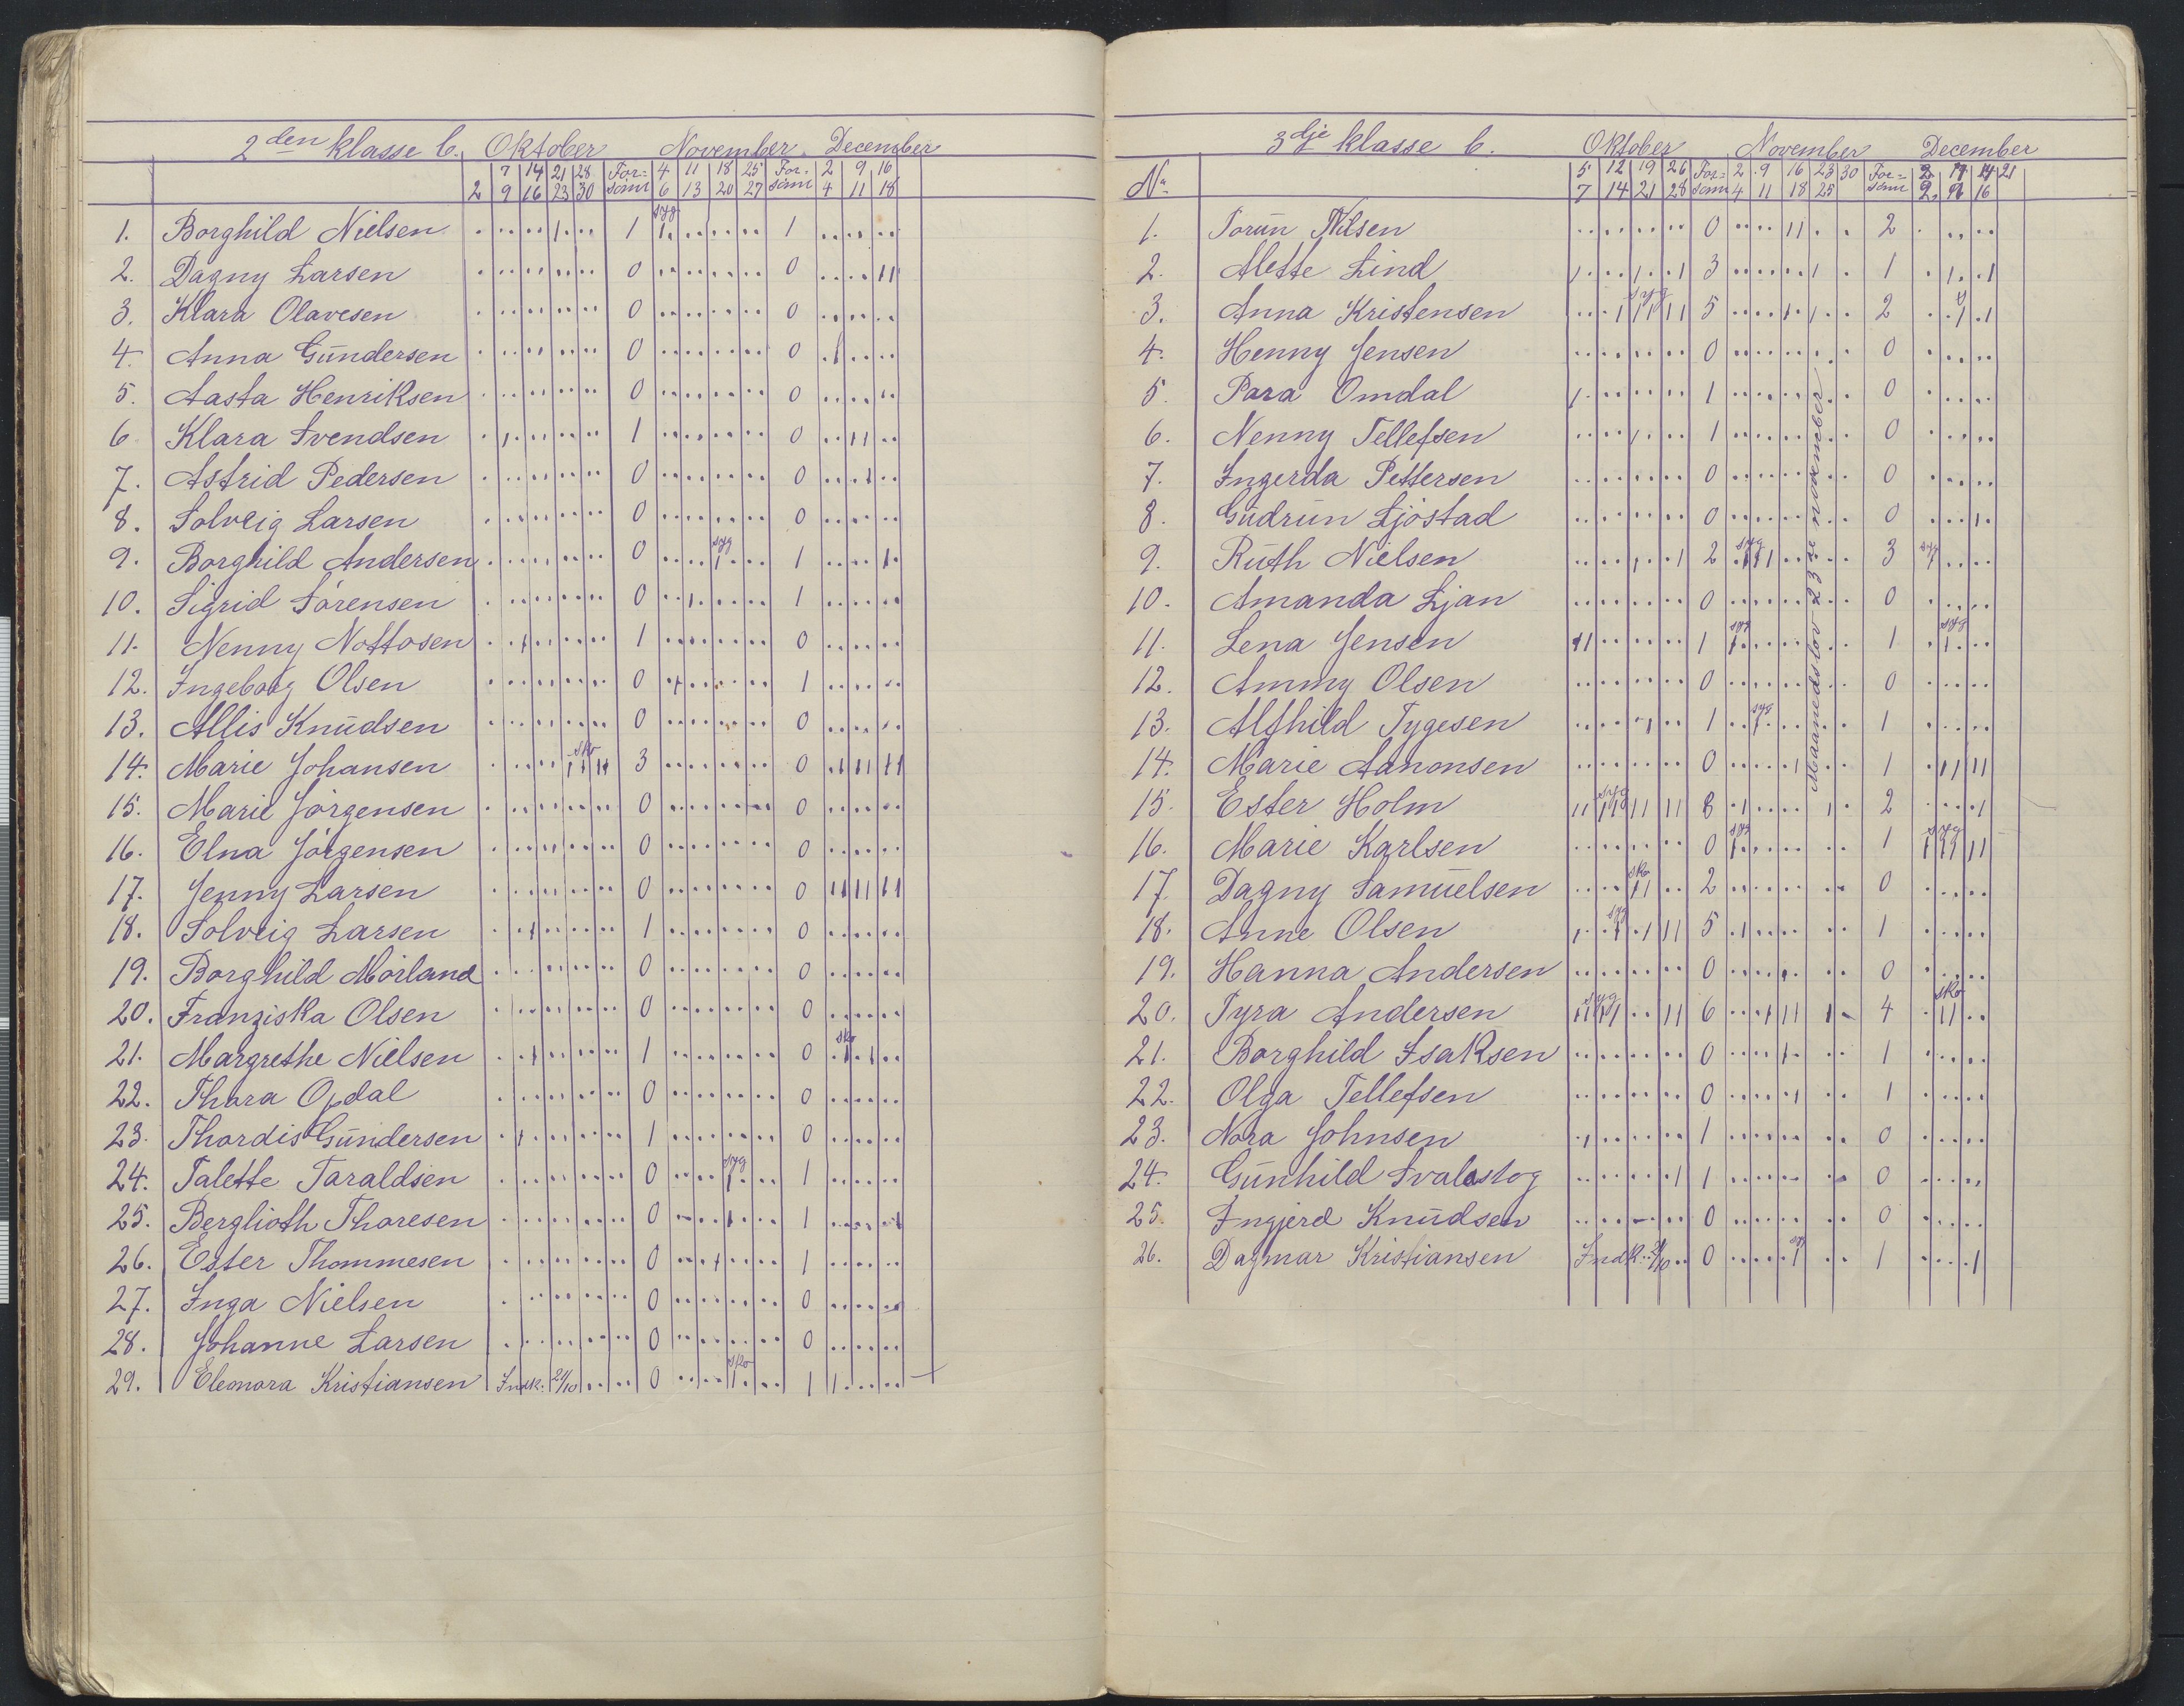 2den klasse b. Oktober November December
7 14 21 28 For= 4 11 18 25 For. 2 9 16
2 9 16 23 30 sömt 6 13 20 27 sömt 4 11 18
1. Borghild Nielsen 1 syg 1
2. Dagny Larsen 0 0
3. Klara Olavesen 0 0
4. Anna Gundersen 0 0
5. Aasta Henriksen 0 0
6. Klara Svendsen 1 0
7. Astrid Pedersen 0 0
8. Solveig Larsen 0 0
9. Borghild Andersen 0 syg 1
10. Sigrid Sørensen 0 1
11. Nenny Nottosen 1 0
12. Ingeborg Olsen 0 1
13. Allis Knudsen 0 0
14. Marie Johansen sko 3 0
15. Marie Jörgensen 0 0
16. Elna Jörgensen 0 0
17. Jenny Larsen 0 0
18. Solveig Larsen 1 0
19. Borghild Mörland 0 0
20. Franziska Olsen 0 0
21. Margrethe Nielsen 1 0 sko
22. Thora Opdal 0 0
23. Thordis Gundersen 1 0
24. Talette Taraldsen 0 syg 1
25. Berglioth Thoresen 0 1
26. Ester Thommesen 0 1
27. Inga Nielsen 0 0
28. Johanne Larsen 0 0
29. Eleonora Kristiansen Indk. 21/10 0 sko 1
3dje klasse b. Oktober November December
5 12 19 26 For= 2 9 16 23 30 For= 14 21
No 7 14 21 28 sömt 4 11 18 25 sömt 2 9 16
1. Torun Nilsen 0 2
2. Alette Lind 3 1
3. Anna Kristensen syg 5 2
4. Henny Jensen 0 0
5. Para Omdal 1 0
6. Nenny Tellefsen 1 0
7. Ingerda Pettersen 0 0
8. Gudrun Ljöstad 0 0
9. Ruth Nielsen 2 syg 3 syg
10. Amanda Ljan 0 0
11. Lena Jensen 1 syg 1 syg
12. Ammy Olsen 0 0
13. Alfhild Tygesen 1 syg 1
14. Marie Aanonsen 0 1
15. Ester Holm syg 8 2
16. Marie Karlsen 0 syg 1 syg
17. Dagny Samuelsen sko 2 0
18. Anne Olsen syg 5 1
19. Hanna Andersen 0 0
20. Tyra Andersen syg 6 4 sko
21. Borghild Isaksen 0 1
22. Olga Tellefsen 0 1
23. Nora Johnsen 1 0
24. Gunhild Svalastog 1 0
25. Ingjerd Knudsen 0 0
26. Dagmar Kristiansen Indk. 0 syg 1
Maanedslov 23de november